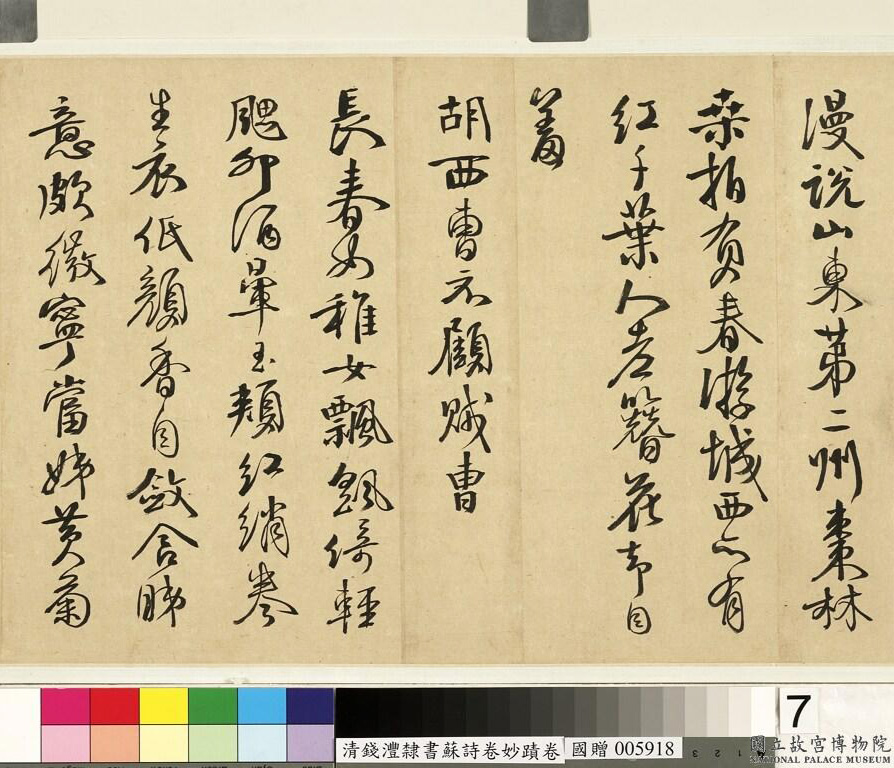 漫說山東第二州棗林
桒拍負春游城西亦有
紅千葉人老簪花却自
羞
胡西曹示顧賊曹
長春如稚女飄颻倚輕
颸卯酒暈玉頰紅綃卷
生衣低顏香自斂含睇
意頗微寧當娣黃菊
7
清錢灃隸書蘇詩卷妙蹟卷
國贈 005918
國立故宮博物院
NATIONAL PALACE MUSEUM